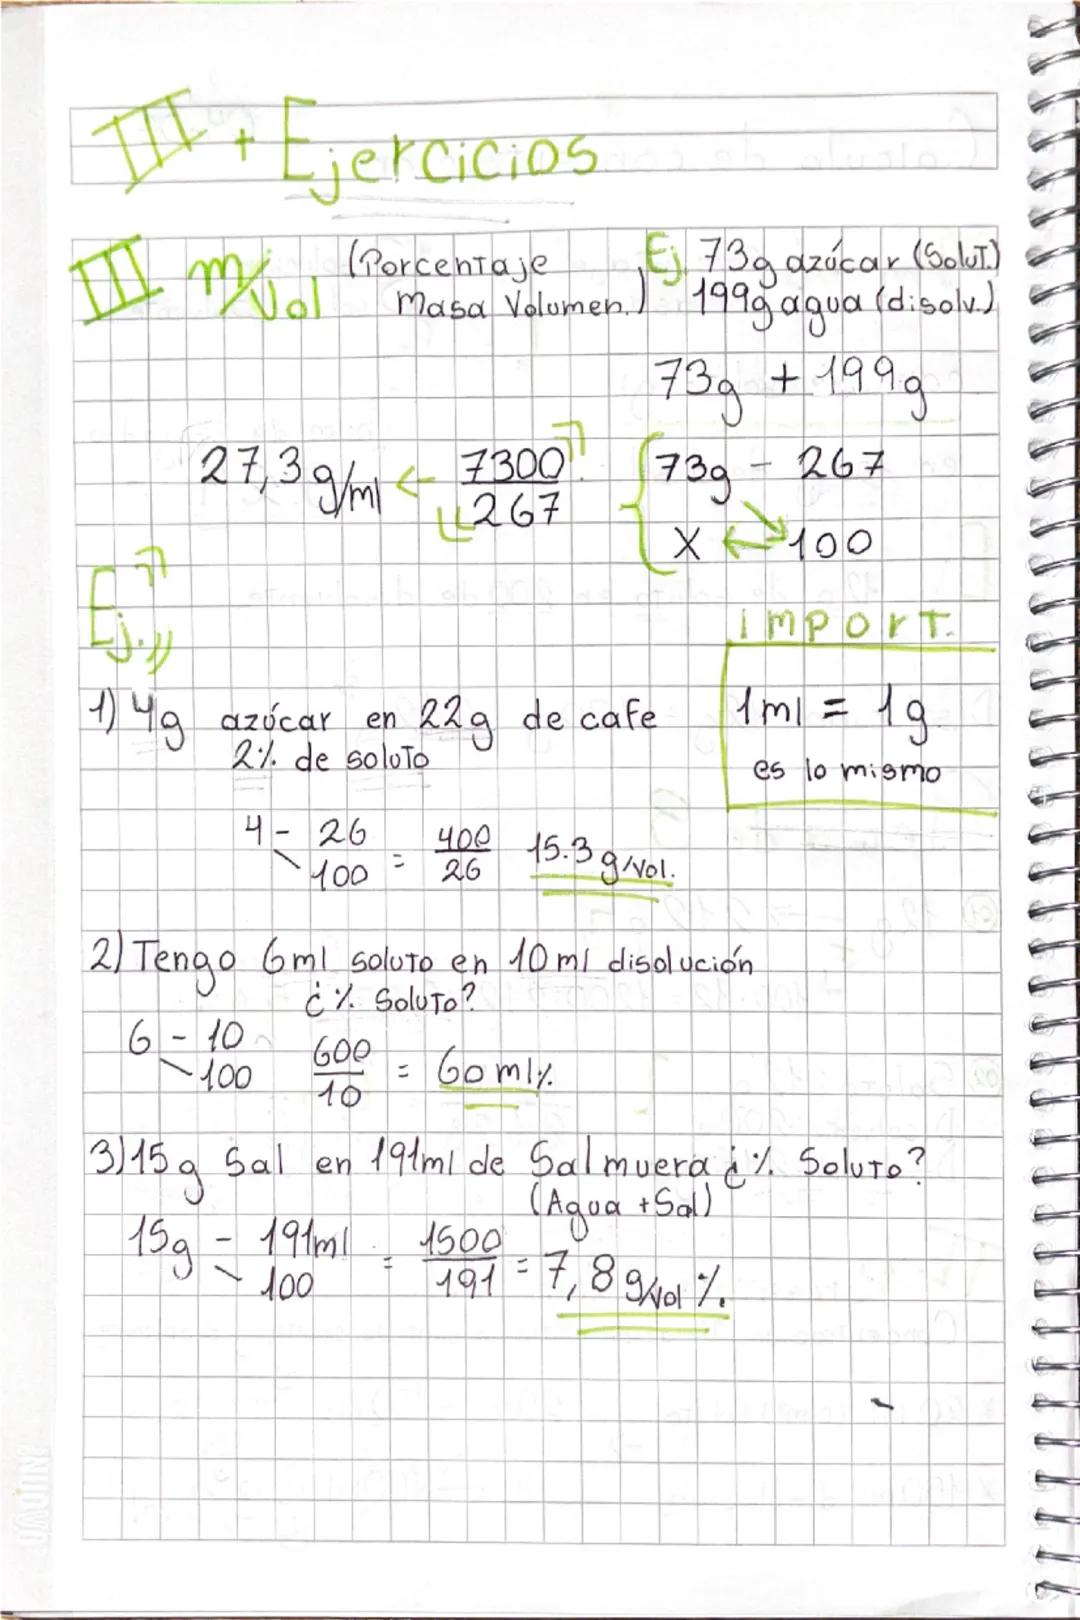 III + Ejercicios
III m/vol (Porcentaje Masa Volumen.)
Ej. 73g azúcar (Solut.)
199g agua (disolv.)
73g + 199g
27,3 g/ml ← 7300/267
73g - 267
X 100
Ej.
IMPORT.
1ml = 1g
es lo mismo
1) 4g azúcar en 22g de cafe
2% de soluto
4 - 26
100 = 400/26 15.3 g/vol.
2) Tengo 6ml soluto en 10ml disolución
¿% Soluto?
6 - 10
100 600/10 = 60 ml%
3) 15g Sal en 191ml de Salmuera ¿% Soluto?
(Agua + Sal)
15g - 191ml
100 = 1500/191 = 7,8 g/vol %.